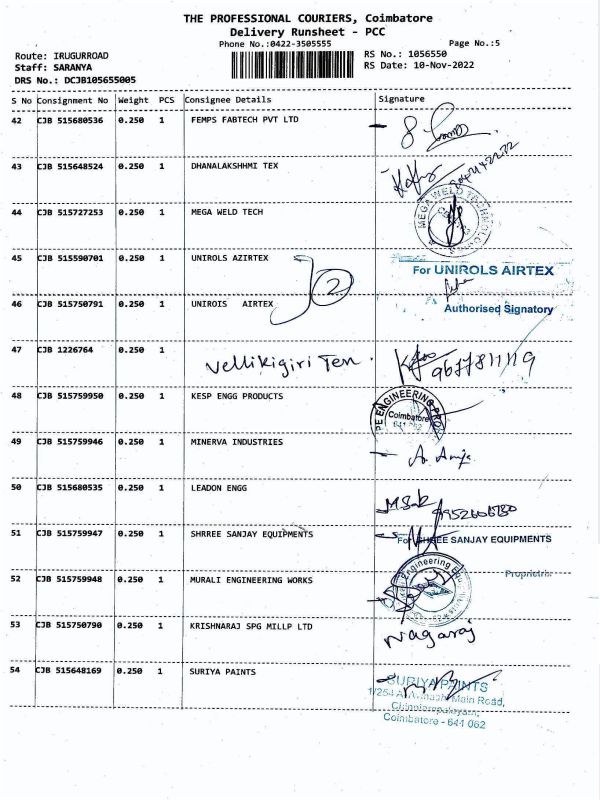 THE PROFESSIONAL COURIERS, Coimbatore
Delivery Runsheet - PCC
Phone No.:0422-3505555
Page No.:5
Route: IRUGURROAD
RS No.: 1056550
Staff: SARANYA
RS Date: 10-Nov-2022
DRS No.: DCJB105655005
S No Consignment No Weight PCS Consignee Details Signature
42 CJB 515680536 0.250 1 FEMPS FABTECH PVT LTD
43 CJB 515648524 0.250 1 DHANALAKSHHMI TEX
44 CJB 515727253 0.250 1 MEGA WELD TECH
MEGA WELD TECH
45 CJB 515590701 0.250 1 UNIROLS AZIRTEX
For UNIROLS AIRTEX
2
46 CJB 515750791 0.250 1 UNIROIS AIRTEX
Authorised Signatory
47 CJB 1226764 0.250 1
Vellikigiri Tex.
9677811119
48 CJB 515759950 0.250 1 KESP ENGG PRODUCTS
PE ENGINEERING PROD
Coimbatore
641 062
49 CJB 515759946 0.250 1 MINERVA INDUSTRIES
50 CJB 515680535 0.250 1 LEADON ENGG
51 CJB 515759947 0.250 1 SHRREE SANJAY EQUIPMENTS
For SHREE SANJAY EQUIPMENTS
Proprietrix
52 CJB 515759948 0.250 1 MURALI ENGINEERING WORKS
Engineering
53 CJB 515750790 0.250 1 KRISHNARAJ SPG MILLP LTD
Nagaraj
54 CJB 515648169 0.250 1 SURIYA PAINTS
SURIYA PAINTS
Main Road,
Coimbatore - 641 062